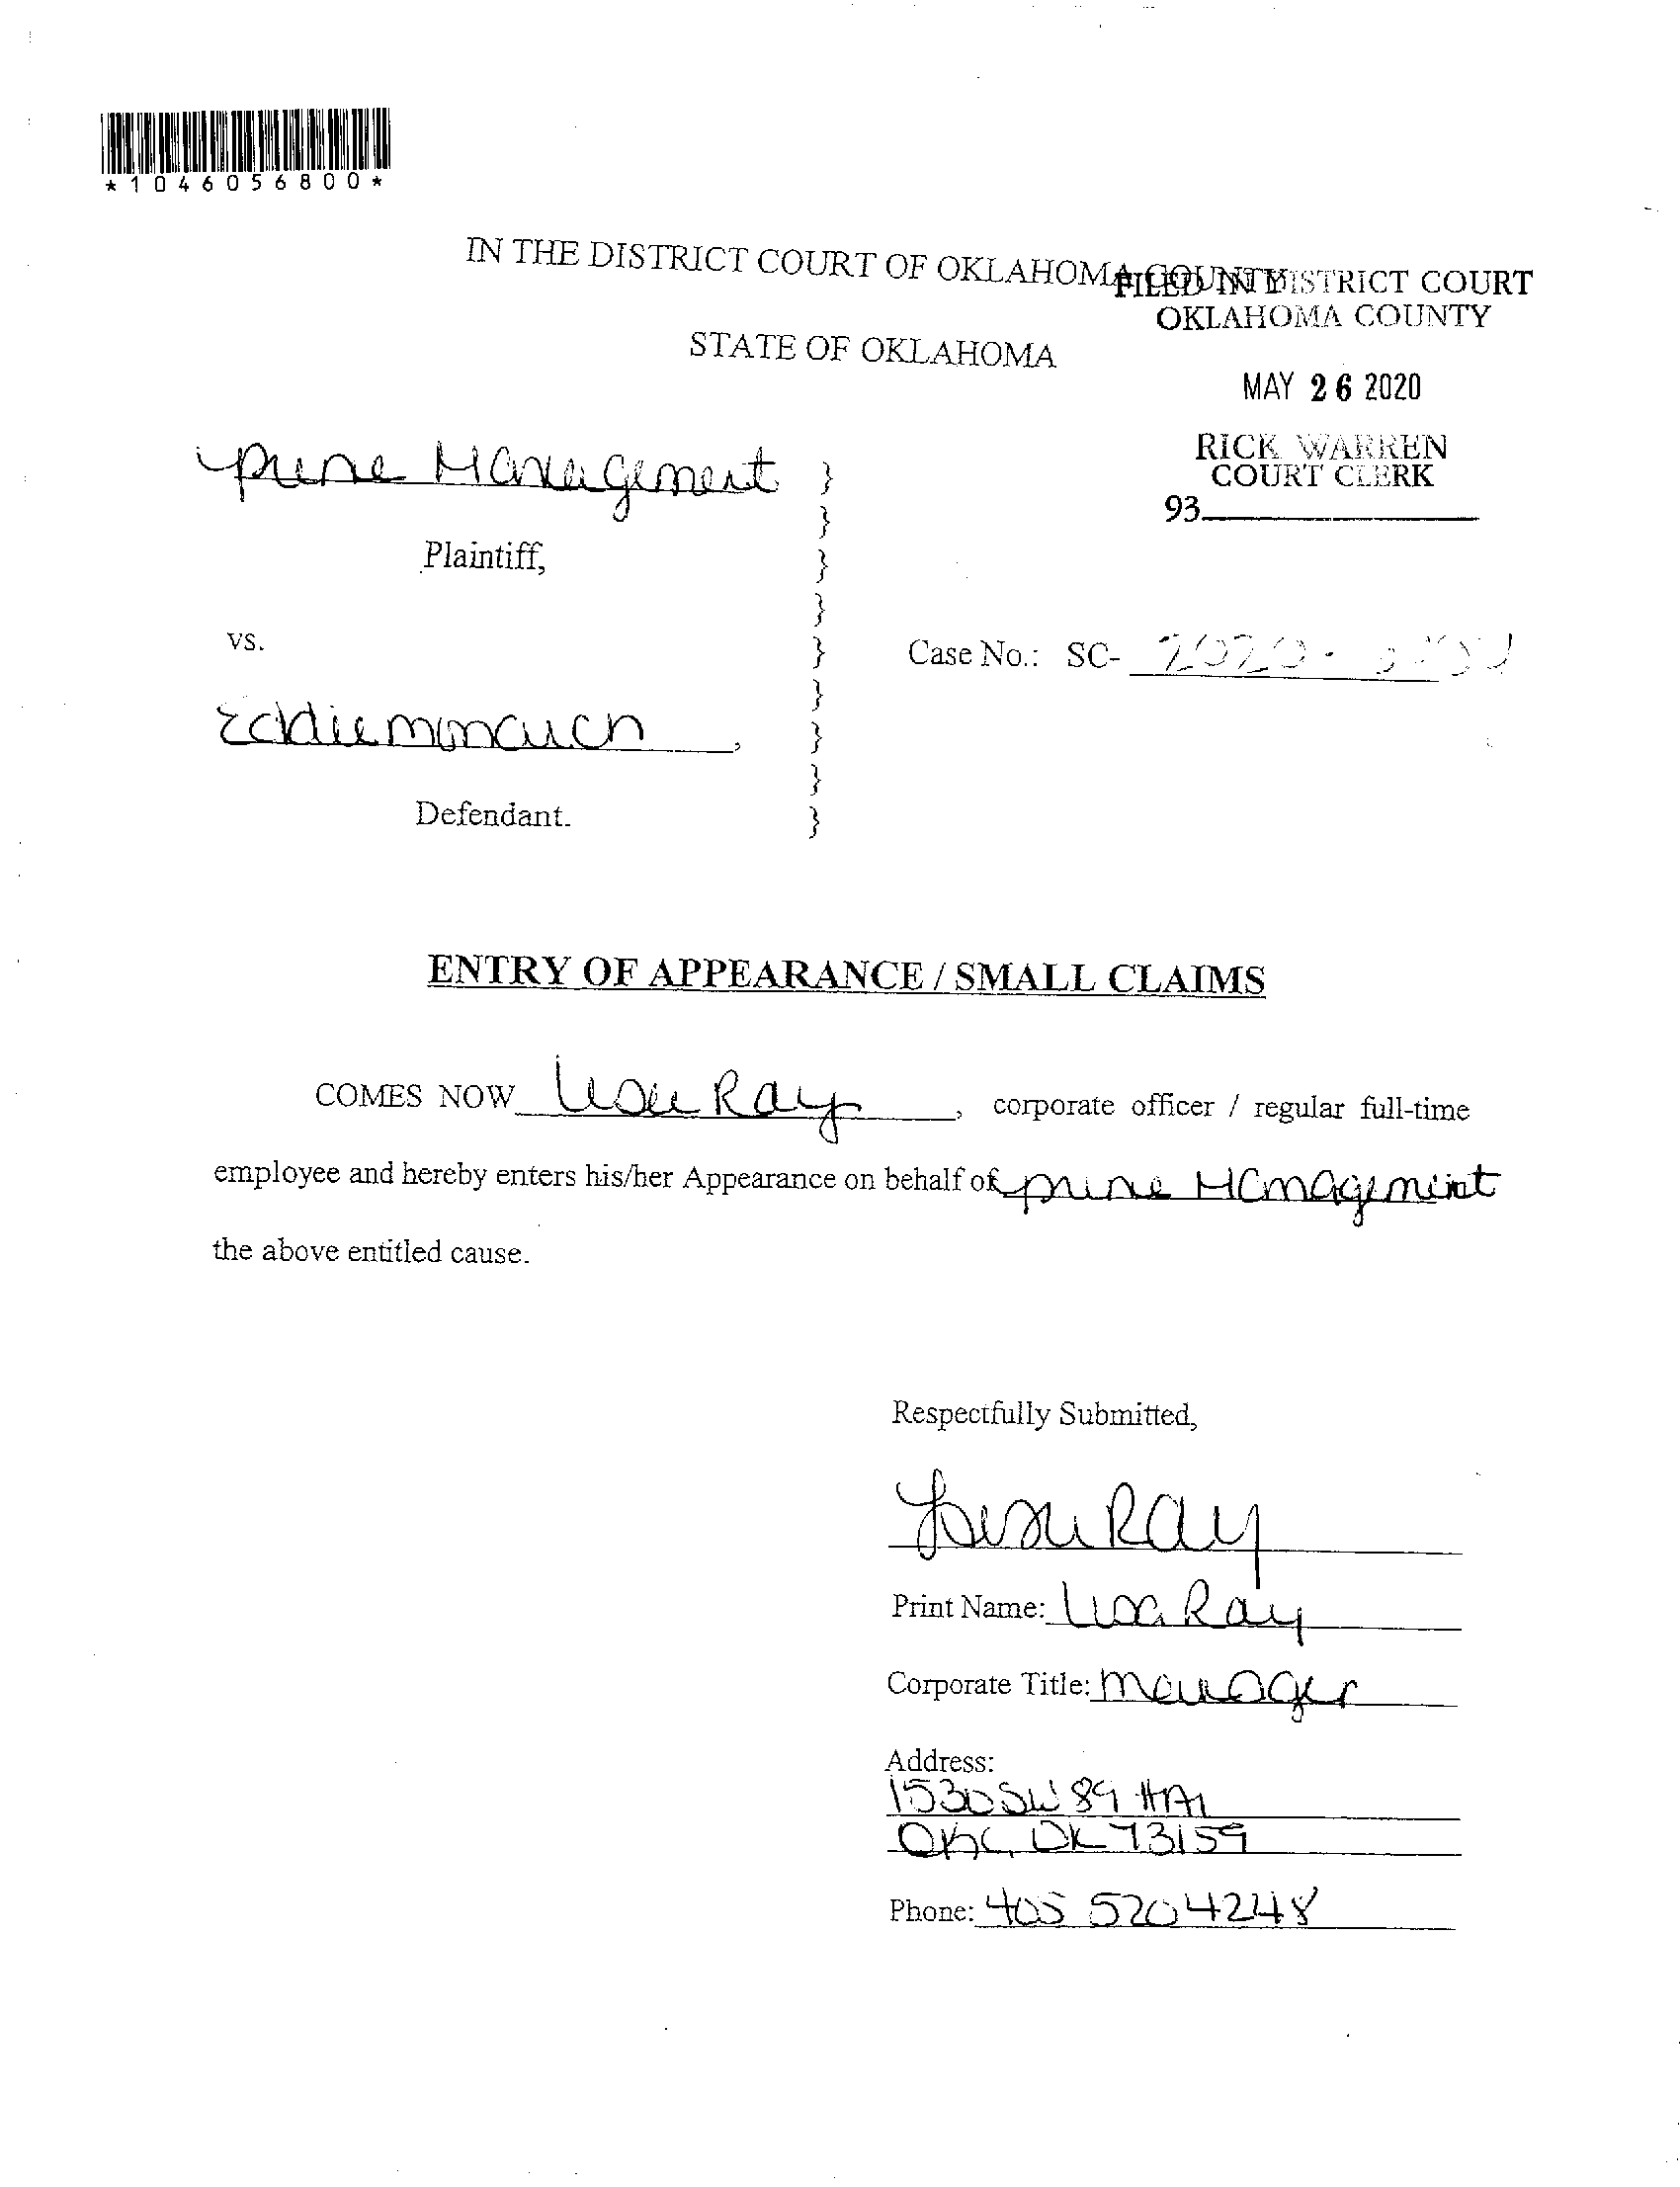 *1046056800*
IN THE DISTRICT COURT OF OKLAHOMA COUNTY
FILED IN DISTRICT COURT
OKLAHOMA COUNTY
STATE OF OKLAHOMA
MAY 26 2020
RICK WARREN
COURT CLERK
93
Management }
}
Plaintiff, }
}
vs. }
Case No.: SC- 2020-
}
Eddie , }
}
Defendant. }
ENTRY OF APPEARANCE / SMALL CLAIMS
COMES NOW Lisa Ray, corporate officer / regular full-time
employee and hereby enters his/her Appearance on behalf of Management
the above entitled cause.
Respectfully Submitted,
Lisa Ray
Print Name: Lisa Ray
Corporate Title: Manager
Address:
1530 SW 89 #A1
OKC, OK 73159
Phone: 405 520 4248